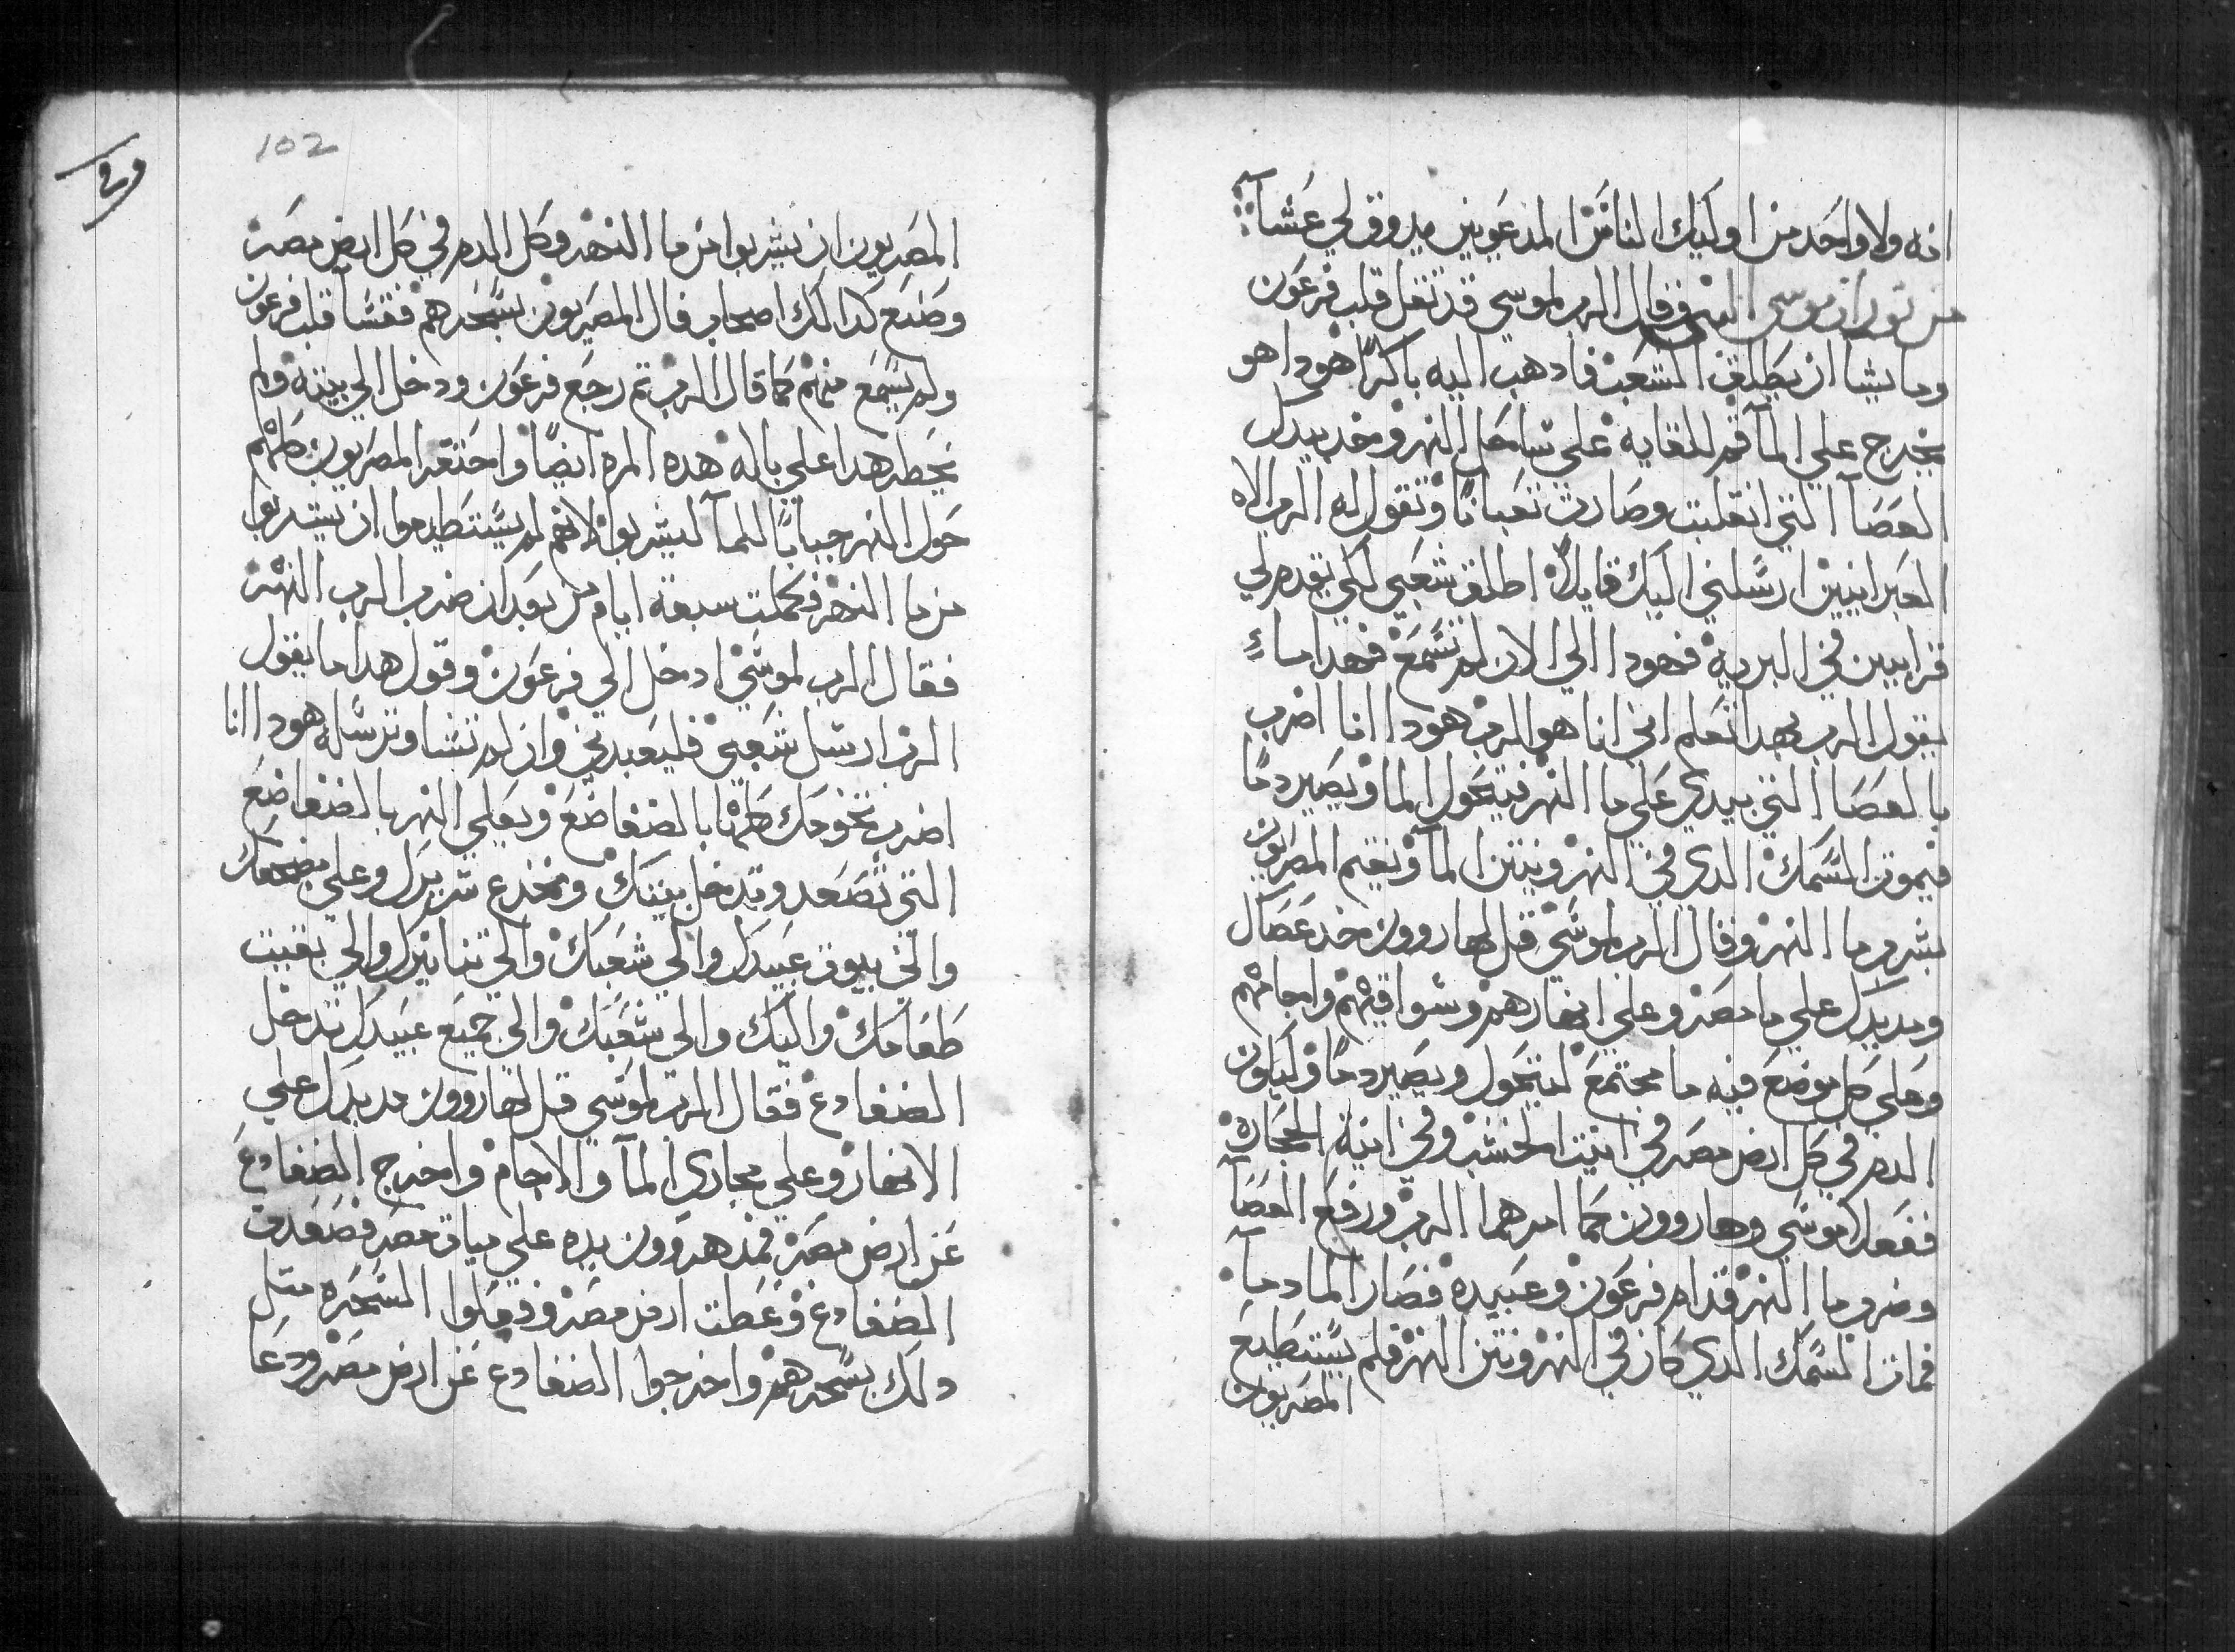 انه ولا واحد من اوليك الناس المدعويين يدوق لي عشآ
من توراة موسى النبي فقال الرب لموسي قد تقل قلب فرعون
وما يشا ان يطلق الشعب فادهب اليه باكرًا هودا هو
يخرج علي المآ قم للقايه علي ساحل النهر وخد بيدك
العصآ التي انقلبت وصارت تعبانًا وتقول له الرب الاه
العبرانيين ارسلني اليك قايلاً اطلق شعبي لكي يقدم لي
قرابيين في البريه فهودا الي الان لم تسمع فهدا ما
يقول الرب بهدا تعلم اني انا هو الرب هودا انا اضرب
بالعصا التي بيدي علي ما النهر فيتحول الما ويصير دمًا
فيموت السمك الدي في النهر وينتن المآ ونقم المصريون
بشرب ما النهر وقال الرب لموسي قل لهاروون خد عصاك
ومد يدك علي ما مصر وعلي انهارهم وسواقيهم واجامهم
وعلي كل موضع فيه ما مجتمع ليتحول ويصير دمًا وليكون
الدم في كل ارض مصر في انيت الخشب وفي انية الحجارة
ففعل موسي وهاروون كما امرهما الرب ورفع العصآ
وضرب ما النهر قدام فرعون وعبيده فصار الما دمآ
فمات السمك الدي كان في النهر ونتن النهر فلم يستطيع
المصريون
102
المصريون ان يشربوا من ما النهر وكل الدم في كل ارض مصر
وصنع كدالك اصحاب فال المصريون بسحرهم فقسآ قلب فرعون
ولم يسمع منهم كما قال الرب تم رجع فرعون ودخل الي بيته ولم
يخطر هدا علي باله هده المره ايضًا واحتفر المصريون كلهم
حول النهر جبابًا للمآ ليشربوا لانهم لم يستطيعوا ان يشربوا
من ما النهر فكملت سبعة ايام من بعد ان ضرب الرب النهر
فقال الرب لموسي ادخل الي فرعون وقول هدا ما يقول
الرب ارسل شعبي فليعبدني وان لم تشا وترسله هودا انا
اضرب تخومك كلها بالضفاضع ويغلي النهر بالضفاضع
التي تصعد وتدخل بيتك ومخدع سريرك وعلي مضجعك
والي بيوت عبيدك والي شعبك والي تنانيرك والي بقيت
طعامك واليك والي شعبك والي جميع عبيدك تدخل
الضفادع فقال الرب لموسي قل لهاروون مد يدك علي
الانهار وعلي مجاري المآ والاجام واخرج الضفادع
عن ارض مصر فمد هروون يده علي مياة مصر فصعدت
الضفادع وغطت ارض مصر وفعلوا السحره متل
دلك بسحرهم واخرجوا الضفادع عن ارض مصر ودعا